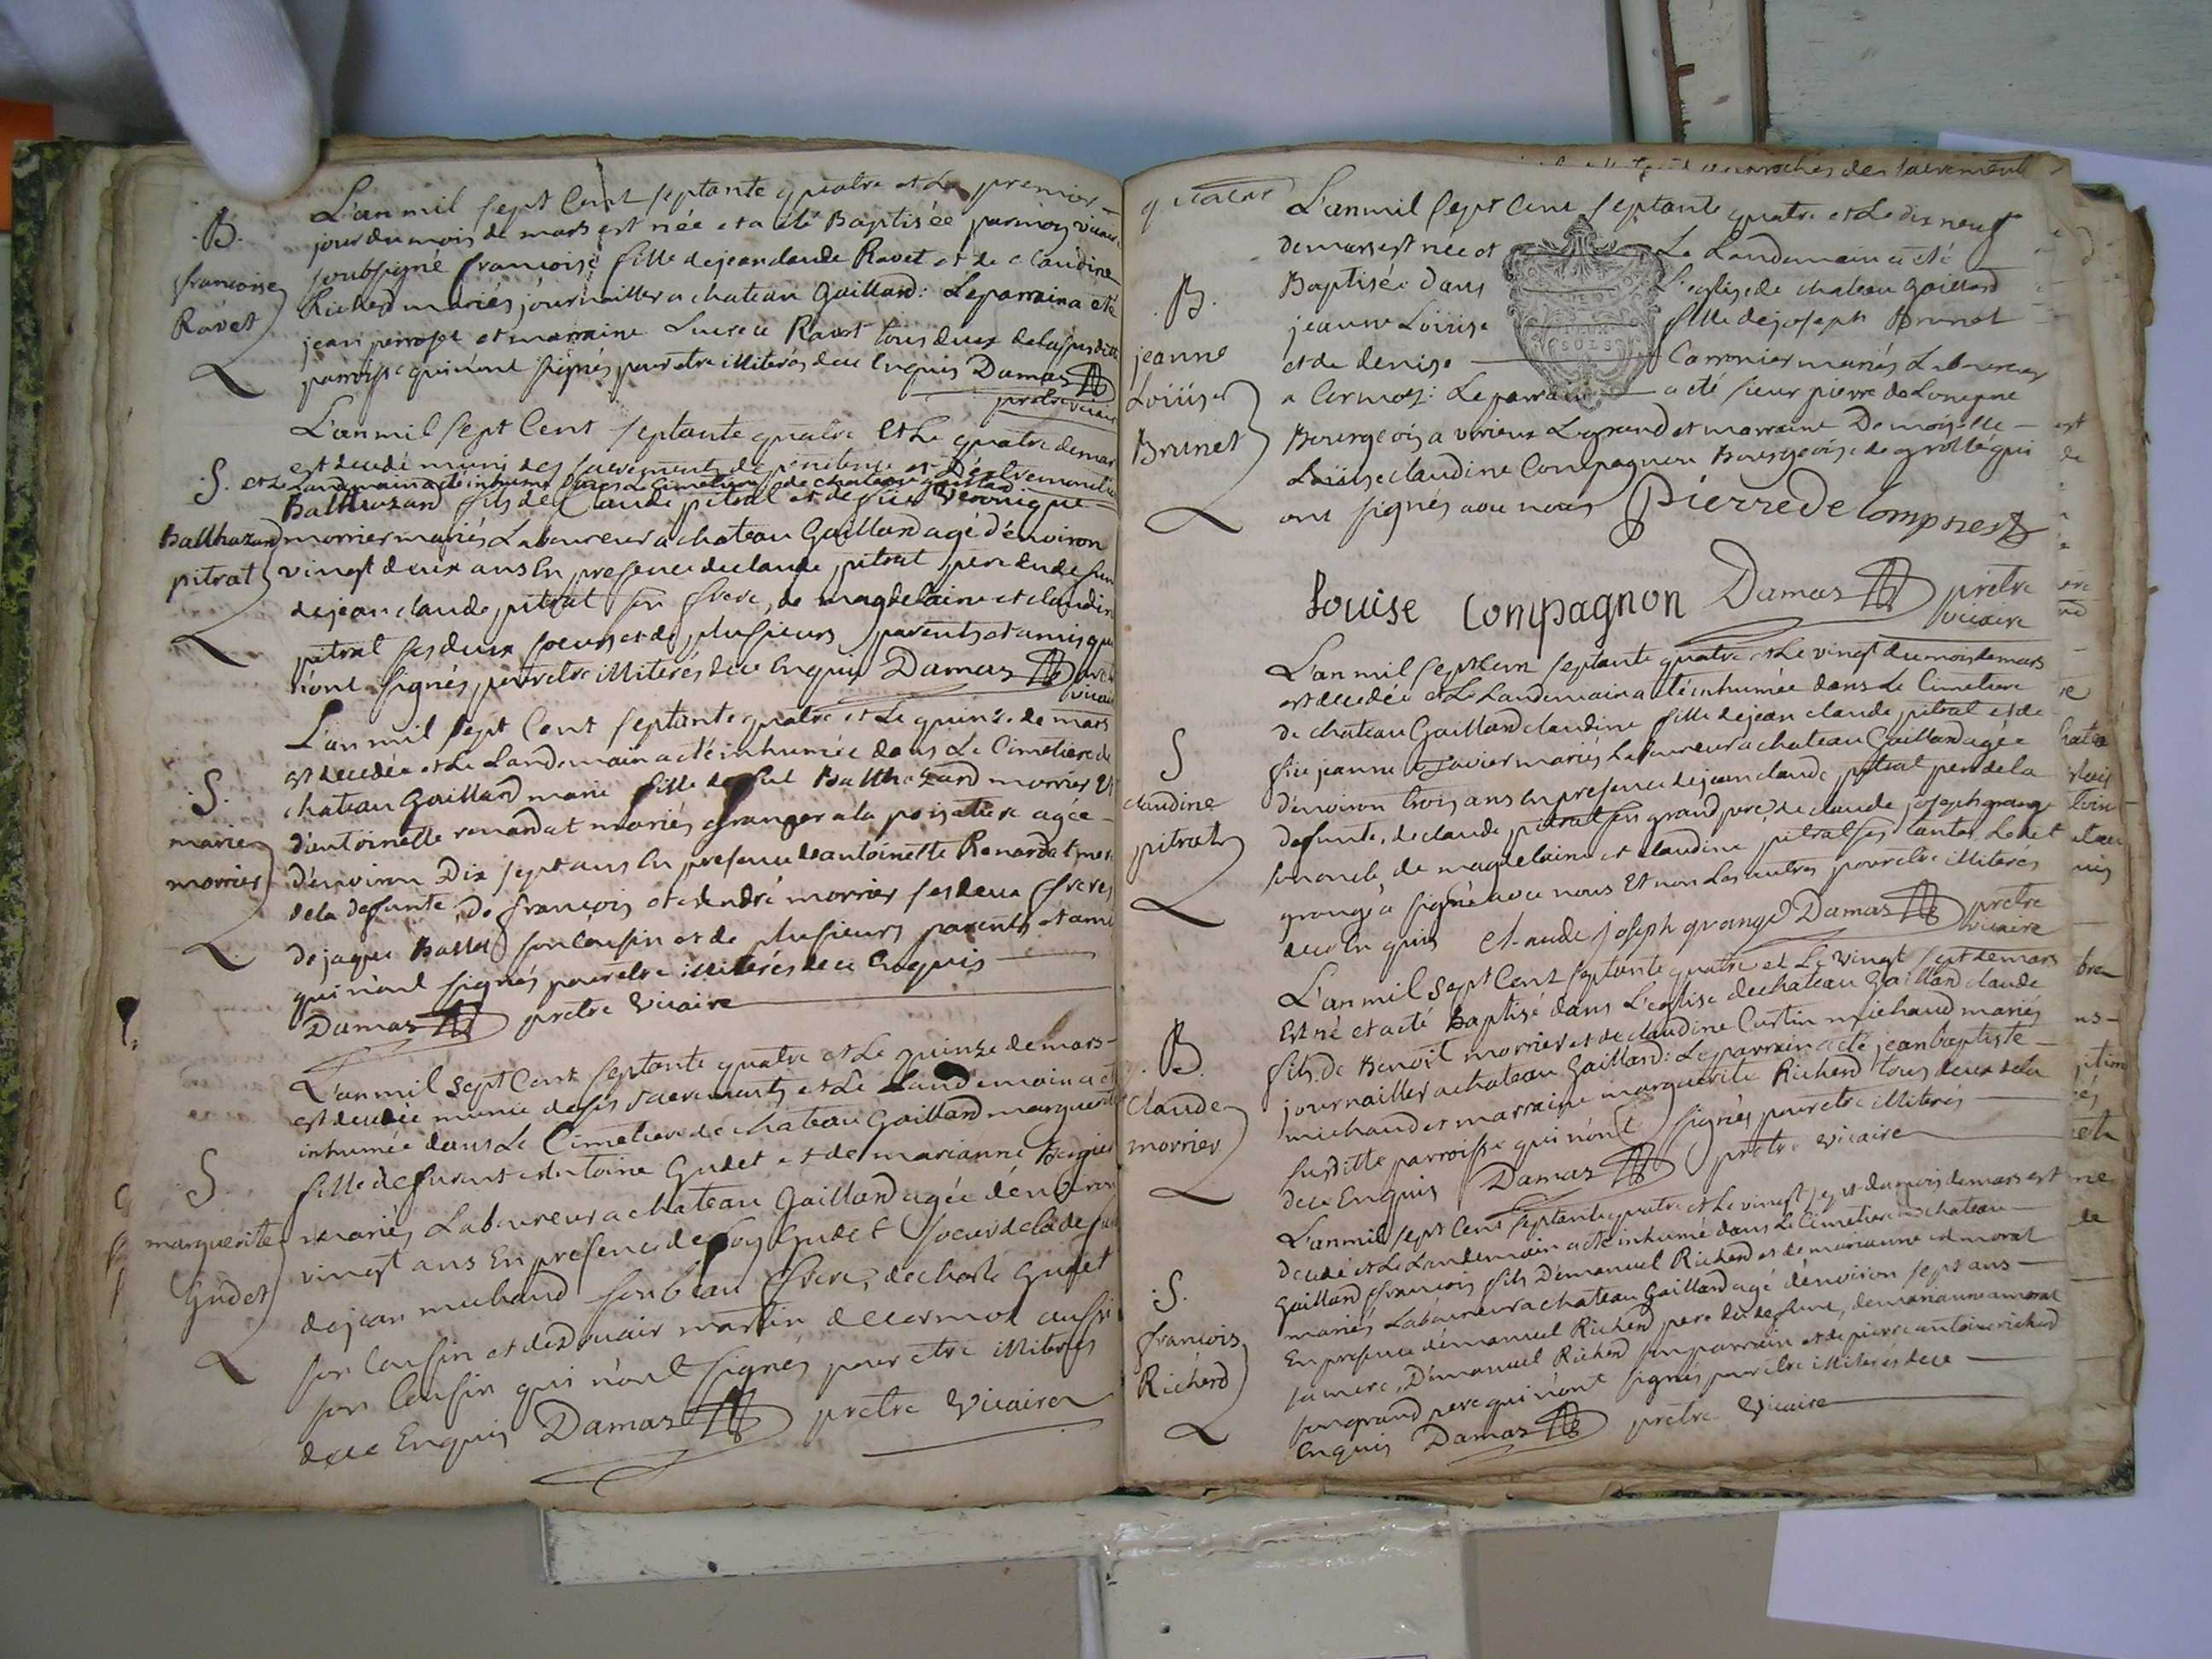 L'an mil sept Cent septante quatre et Le premier
jour du mois de mars est née et a été Baptisée par moy vicaire
soubsigné francoise fille de jean claude Ravet et de claudine
Richerd mariés journaillier a chateau Gaillard: Le parrain a été
jean perroset et marraine Lucrece Ravet tous deux de la susditte
parroisse qui n'ont signés pour etre illiterés de ce Enquis Damas
pretre vicaire
.B.
francoise
Ravet
L'an mil sept Cent septante quatre Et Le quatre de mars
est decedé muni des sacrements de penitence et D'extremonction
et Le Landemain a été inhumé dans Le Cimetiere de chateau gaillard
Balthazard fils de Claude pitrat et de feüe Veronique
morrier mariés Laboureur a chateau Gaillard agé d'environ
vingt deux ans En presence de claude pitrat pere du defunt
de jean claude pitrat son frere, de magdelaine et claudine
pitrat ses deux soeurs et de plusieurs parents et amis qui
n'ont signés pour etre illiterés de ce Enquis Damas pretre
vicaire
.S.
Balthazard
pitrat
L'an mil sept Cent septante quatre et Le quinze de mars
est decedée et Le Landemain a été inhumée dans Le Cimetiere de
chateau Gaillard marie fille de feu Balthazard morrier Et
d'antoinette renardat mariés granger a la poisatiere agée
d'environ Dix sept ans En presence d'antoinette Renardat mere
de la defunte, de francois et andré morrier ses deux freres
de jaque Ballet son Cousin et de plusieurs parents et amis
qui n'ont signés pour etre illiterés de ce Enquis
Damas pretre Vicaire
.S.
marie
morrier
L'an mil sept Cent septante quatre et Le quinze de mars
est decedée munie de ses sacrements et Le Landemain a été
inhumée dans Le Cimetiere de chateau Gaillard marguerite
fille de furent antoine Gudet et de marianne
mariés Laboureur a chateau Gaillard agée d'environ
vingt ans En presence de Gudet soeur de la defunte
de jean michaud son beau frere, de charle Gudet
son Cousin et martin de cormoz aussi
son Cousin qui n'ont signés pour etre illiterés
de ce Enquis Damas pretre Vicaire
S
marguerite
Gudet
approchés des sacrement
L'an mil sept Cent septante quatre et Le dix neuf
de mars est née et Le Landemain a été
Baptisée dans L'eglise de chateau Gaillard
jeanne Loüise fille de joseph Brunet
et de denise Carronier mariés Laboureur
a Cormoz: Le parrain a été sieur pierre de Lompnes
Bourgeois a virieux Legrand et marraine Demoiselle
Loüise claudine Compagnon Bourgeoise de grollé qui
ont signés avec nous Pierre De Lompnes
Louise Compagnon Damas pretre
vicaire
.B.
jeanne
Loüise
Brunet
L'an mil sept Cent septante quatre et Le vingt du mois de mars
est decedée et Le Landemain a été inhumée dans Le Cimetiere
de chateau Gaillard claudine fille de jean claude pitrat et de
feüe jeanne Tavier mariés Laboureur a chateau Gaillard agée
d'environ trois ans En presence de jean claude pitrat pere de la
defunte, de claude pitrat son grand pere, de claude joseph grange
son oncle, de magdelaine et claudine pitrat ses tantes. Ledet
grange a signé avec nous Et non Les autres pour etre illiterés
de ce En quis Claude joseph grange Damas pretre
vicaire
S
claudine
pitrat
L'an mil sept Cent septante quatre et Le vingt sept de mars
Est né et a été Baptisé dans L'eglise de chateau Gaillard claude
fils de Benoit morrier et de claudine Curtin michaud mariés
journaillier a chateau Gaillard: Le parrain a été jean baptiste
michaud et marraine marguerite Richerd tous deux de la
susditte parroisse qui n'ont signés pour etre illiterés
de ce Enquis Damas pretre vicaire
.B.
claude
morrier
L'an mil sept Cent septante quatre et Le vingt sept du mois de mars est
decedé et Le Landemain a été inhumé dans Le Cimetiere de chateau
Gaillard francois fils D'emanuel Richerd et de marianne amorat
mariés Laboureur a chateau Gaillard agé d'environ sept ans
En presence d'emanuel Richerd pere du defunt, de marianne amorat
sa mere, D'emanuel Richerd son parrain et de pierre antoine richerd
son grand pere qui n'ont signés pour etre illiterés de ce
Enquis Damas pretre Vicaire
.S.
francois
Richerd